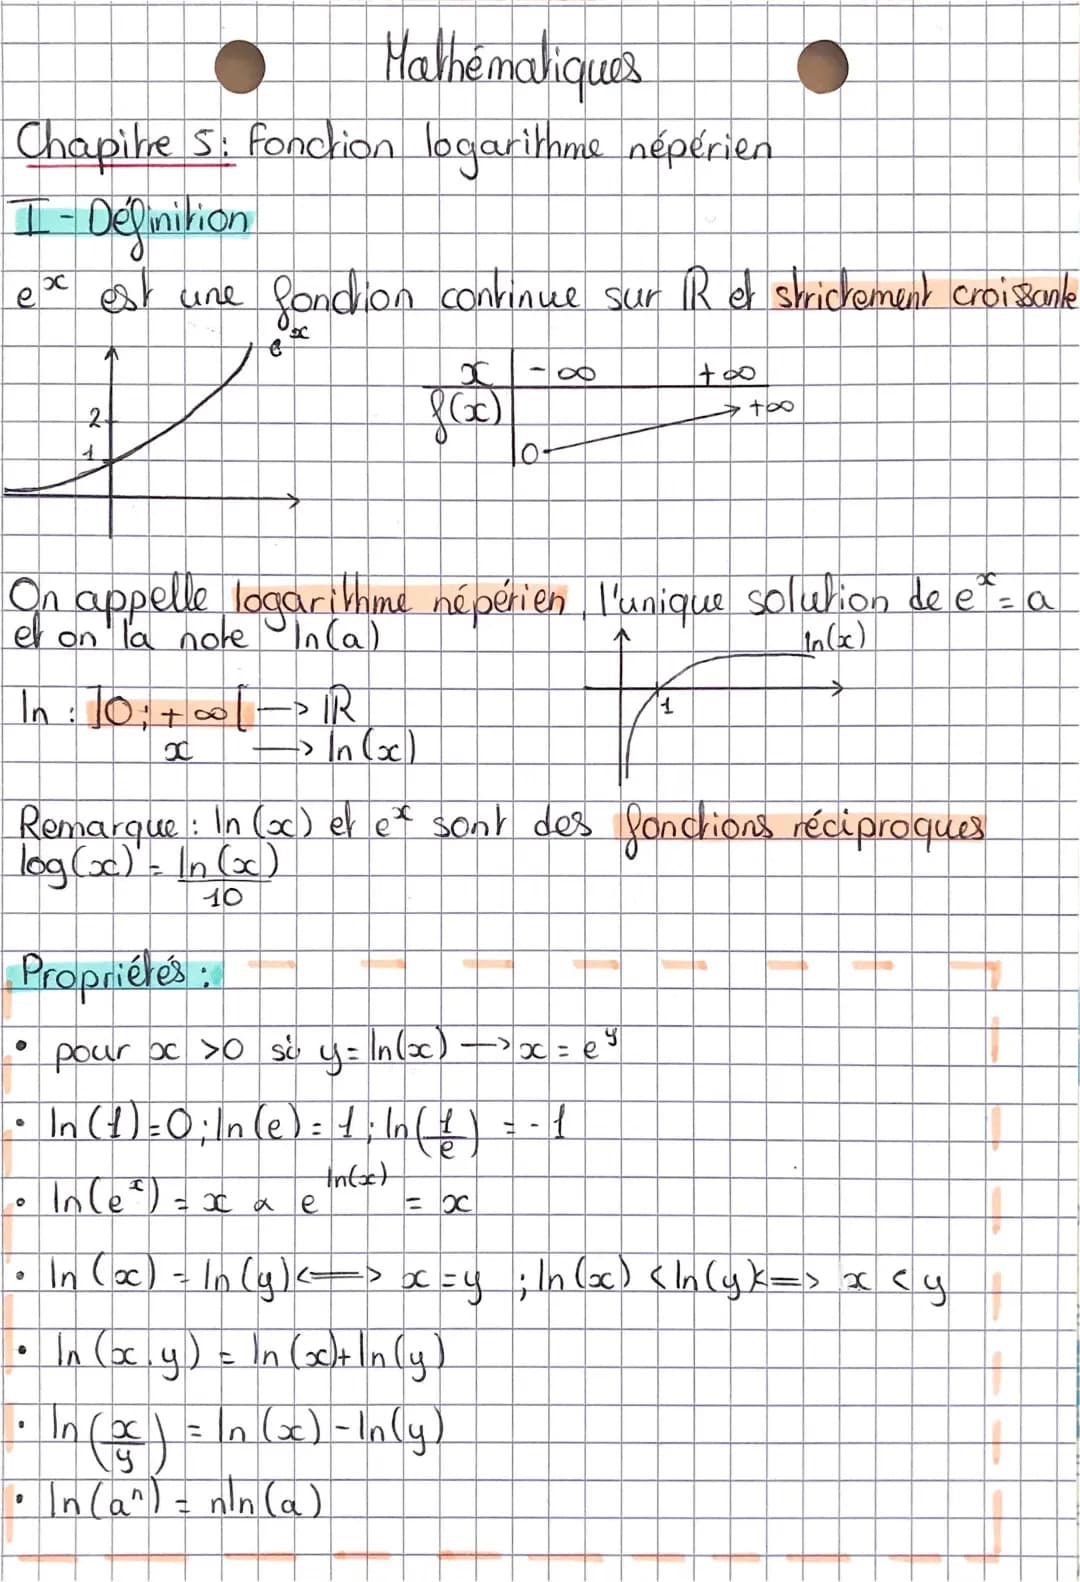 Mathématiques
Chapitre 5: fonction logarithme népérien
I - Définition
eˣ est une fonction continue sur ℝ et strictement croissante
eˣ
x | -∞ +∞
2
f(x) | 0 → +∞
1
On appelle logarithme népérien, l'unique solution de eˣ = a
et on la note ln(a)
ln(x)
1
ln : ]0; +∞[ —> ℝ
x —> ln(x)
Remarque : ln(x) et eˣ sont des fonctions réciproques
log(x) = ln(x)/10
Propriétés :
• pour x >0 si y = ln(x) —> x = eʸ
• ln(1)=0; ln(e) = 1; ln(1/e) = -1
• ln(eˣ) = x & e^ln(x) = x
• ln(x) = ln(y) <==> x = y ; ln(x) < ln(y) <==> x < y
• ln(x.y) = ln(x) + ln(y)
• ln(x/y) = ln(x) - ln(y)
• ln(aⁿ) = nln(a)